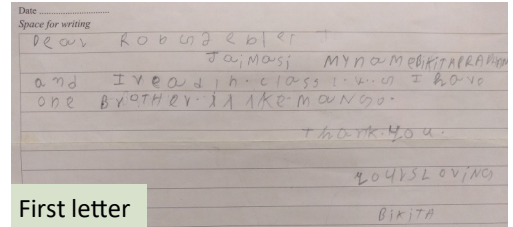 Date
Space for writing
Dear
Jaimasi my name BIKITA
and I read in class I have
one BrOTHer. I like maNgo.
Thank you.
YOURS LOViNG
BiKiTA
First letter